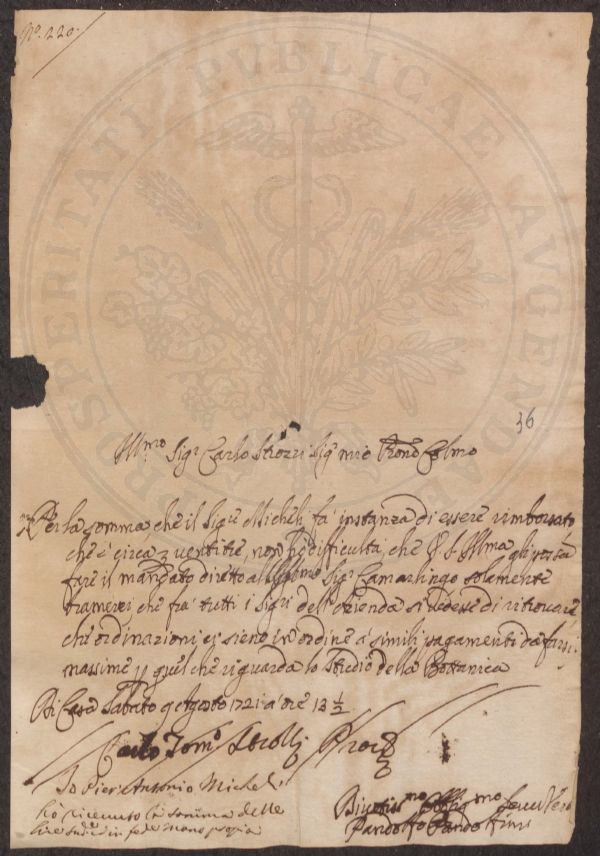 No. 220.
PROSPERITATI PUBLICAE AUGENDAE
36
Ill.mo Sig.r Carlo Strozzi Sig.r mio Prone Colmo
Per la somma, che il Sig.re Micheli fa instanza di essere rimborsato
che è circa ventitre, non ho difficultà, che V. S. Ill.ma gli possa
fare il mandato diretto all' Sig.r Camarlingo solamente
bramerei che fra tutti i Sig.ri dell'Azienda si vedesse di ritrovare
che ordinazioni ci sieno in ordine a simili pagamenti da farsi
massime quel che riguarda lo Studio della Bottanica
Di Casa Sabato 9 Agosto 1721 a ore 13 ½
Carlo Tom.o Strozzi
Io Pier Antonio Micheli
ho ricevuto la somma delle
lire sud.e in fede mano propia
Pandolfo Pandolfini